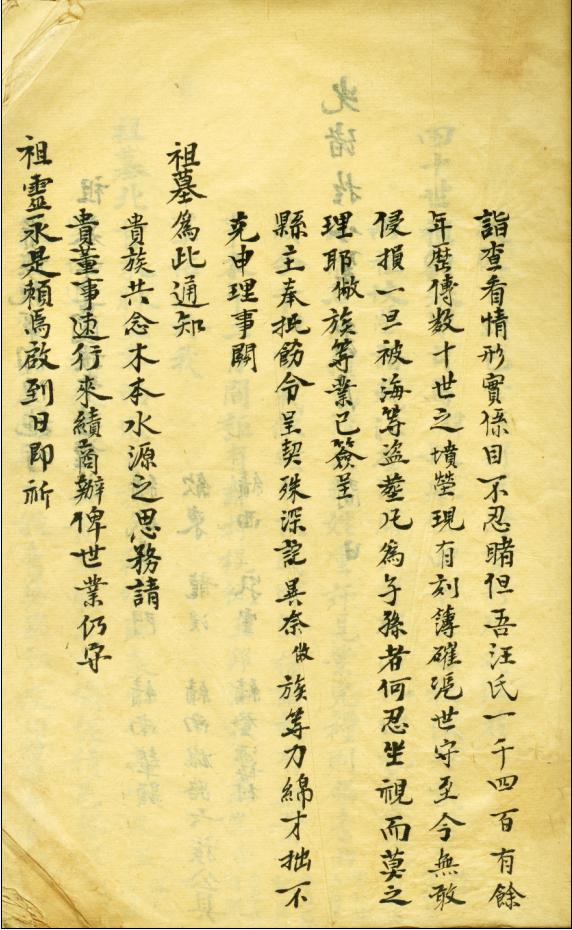 詣查看情形實係目不忍睹但吾汪氏一千四百有餘
年歷傳數十世之墳塋現有刻譜確凴世守至今無敢
侵損一旦被海等盜塟凡為子孫者何忍坐視而莫之
理耶僘族等業已簽呈
縣主奉批飭令呈契殊深詫異奈僘族等力綿才拙不
克申理事關
祖墓為此通知
貴族共念木本水源之思務請
貴董事速行來績商辦俾世業仍守
祖靈永是賴焉啟到日即祈